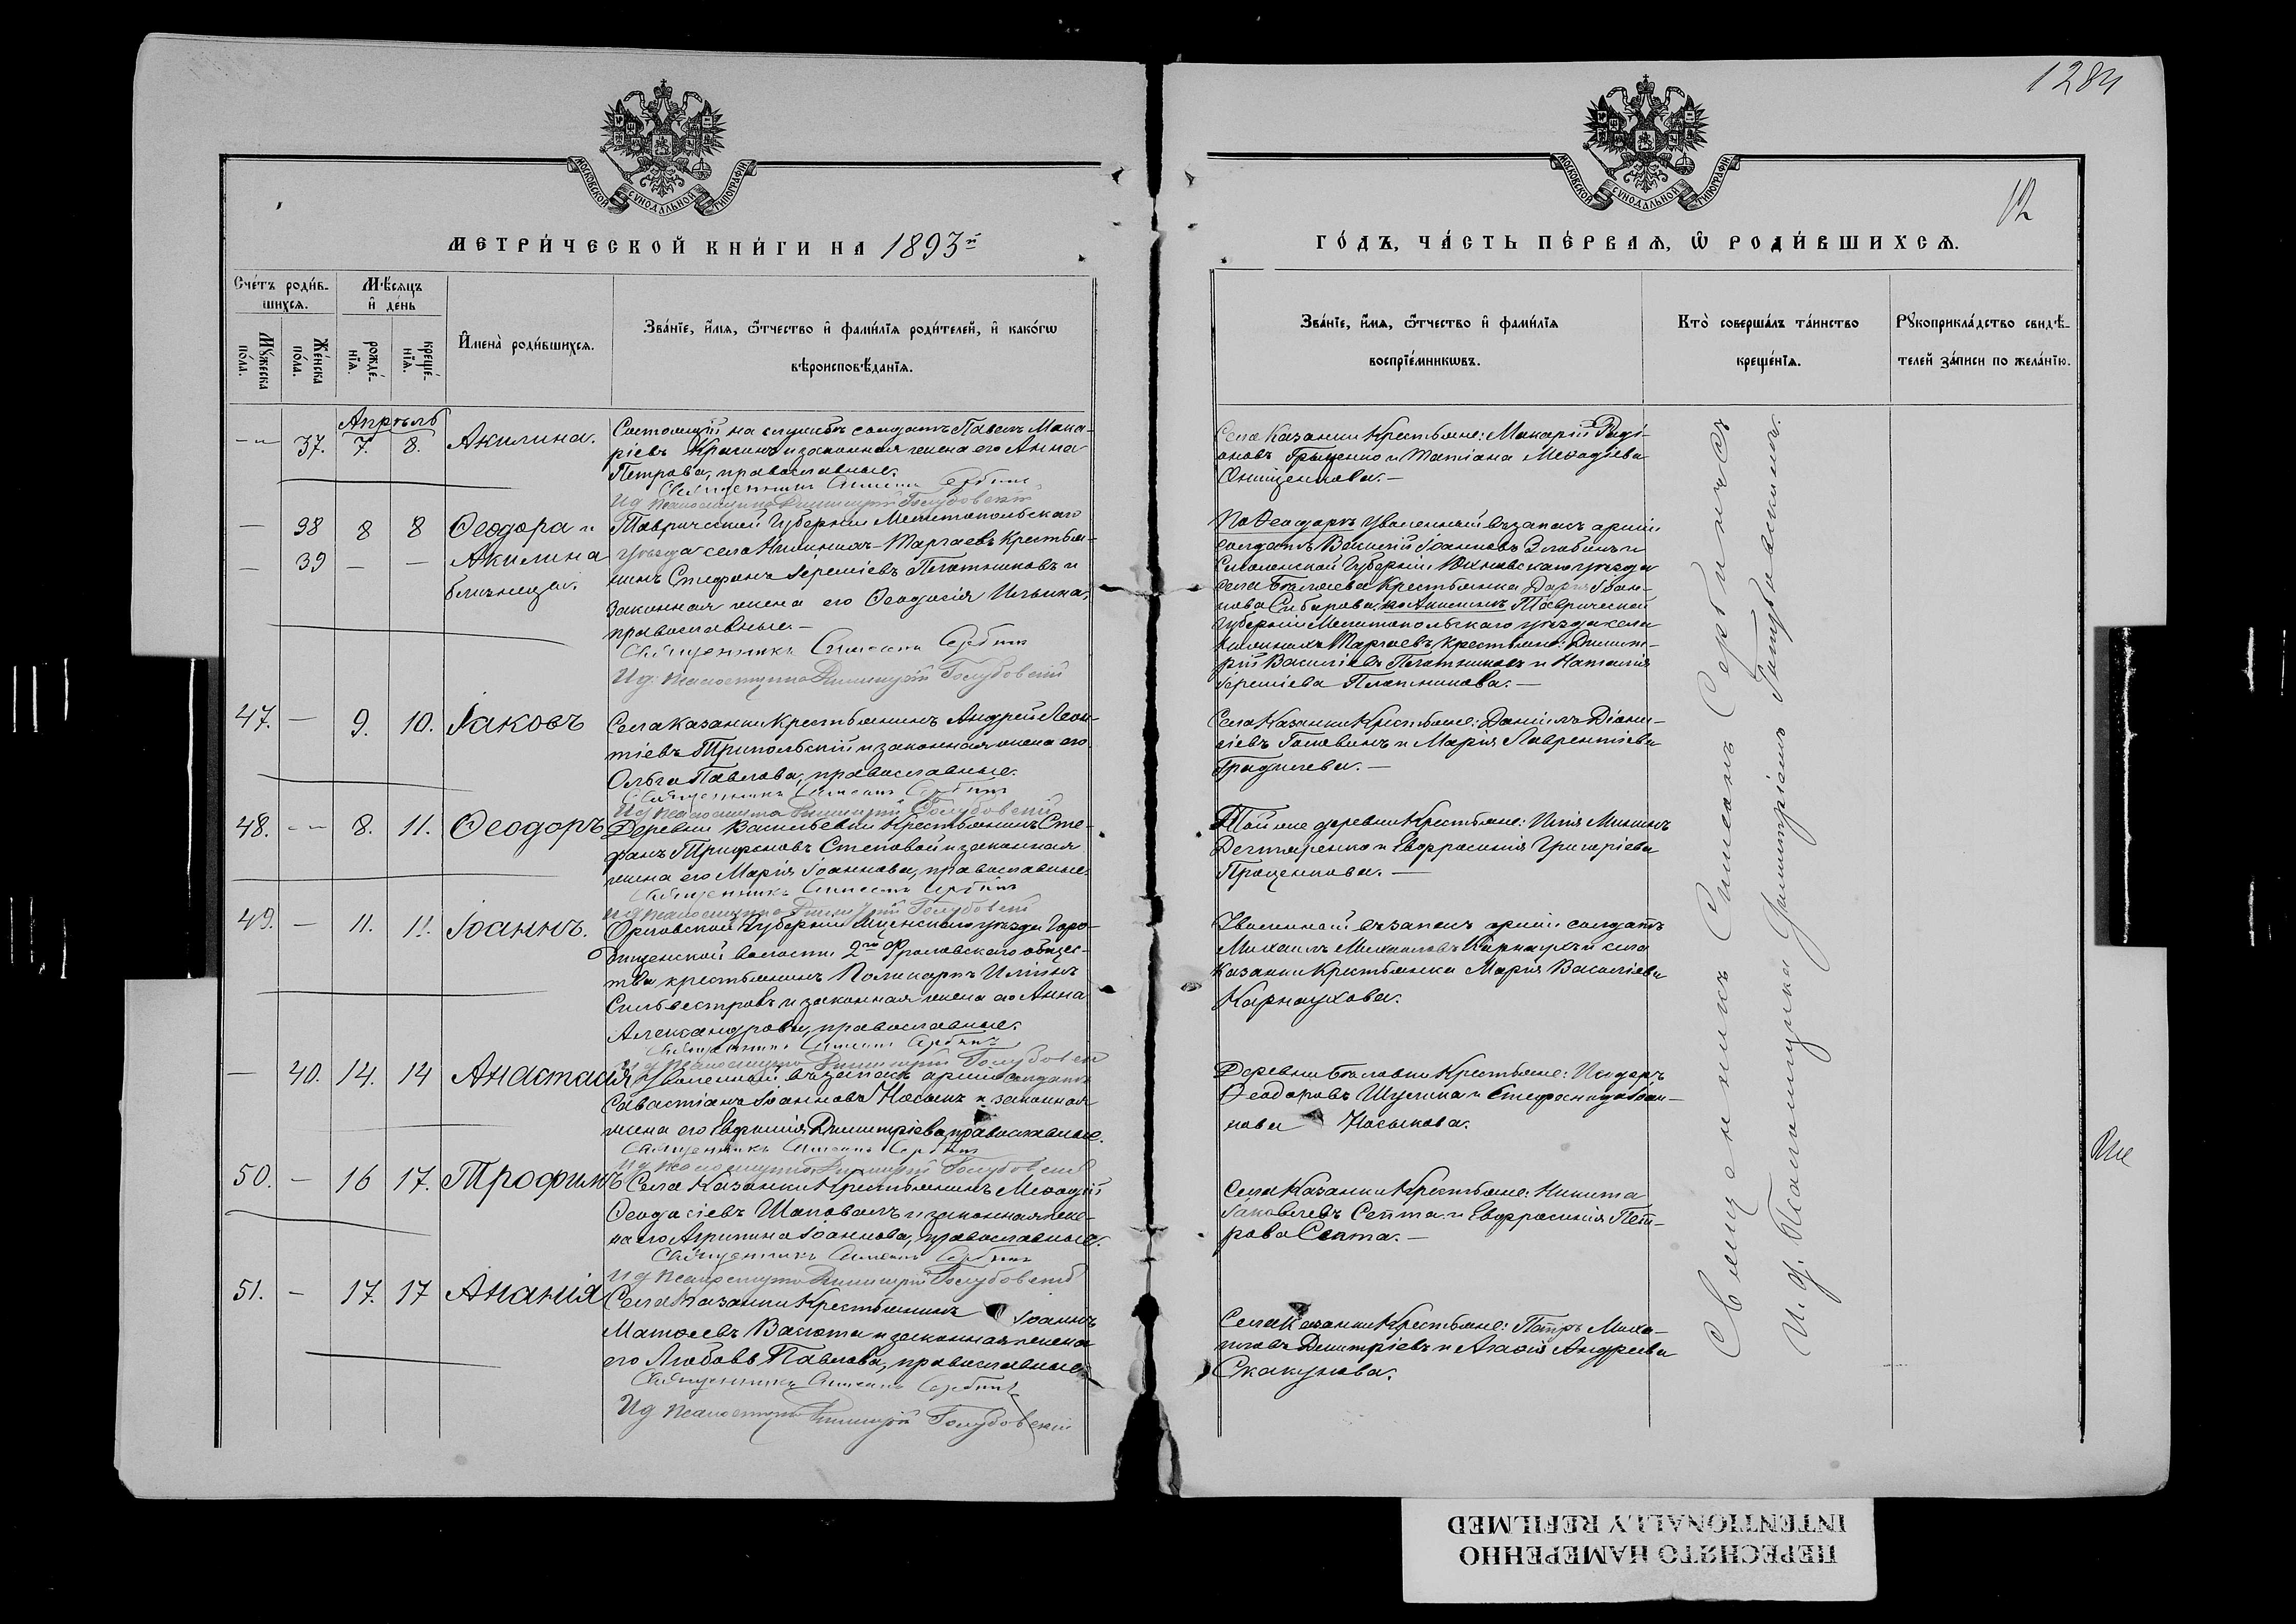 1284
12
МОСКОВСКОЙ СѴНОДАЛЬНОЙ ТИПОГРАФІИ
МОСКОВСКОЙ СѴНОДАЛЬНОЙ ТИПОГРАФІИ
МЕТРИ́ЧЕСКОЙ КНИ́ГИ НА 1893й
ГО́ДЪ, ЧА́СТЬ ПЕ́РВАѦ, Ѡ҆ РОДИ́ВШИХСѦ.
Сче́тъ роди́в-
шихсѧ.
Мꙋ́жеска по́ла.
Же́нска по́ла.
Мѣ́сѧцъ
и҆ де́нь
рожде́-
нїѧ
креще́-
нїѧ.
И҆мена̀ роди́вшихсѧ.
Зва́нїе, и҆́мѧ, ѻ҆́тчество и҆ фами́лїѧ роди́телей, и҆ како́гѡ
вѣроисповѣ́данїѧ.
Зва́нїе, и҆́мѧ, ѻ҆́тчество и҆ фами́лїѧ
воспрїе́мникѡвъ.
Кто̀ соверша́лъ та́инство
креще́нїѧ.
Рꙋкоприкла́дство свидѣ́-
телей за́писи по жела́нїю.
Апрѣль
37. 7. 8. Акилина.
Состоящій на службѣ солдатъ Павелъ Мака-
ріевъ и законная жена его Анна
Петрова, православные.
Священникъ Симеонъ Сербинъ
И д псаломщика Димитрій Голубовскій
Села Казанки Крестьяне: Макарій Роді-
оновъ Грыценко и Татіана Меѳодіева
Онищенкова.—
— 38 8 8 Ѳеодора и
— 39 — — Акилина
близнецы.
Таврической Губерніи Мелитопольскаго
уѣзда села Нижнихъ-Торгаевъ Крестья-
нинъ Стефанъ Іереміевъ Плотниковъ и
законная жена его Ѳеодосія Ильина,
православные.—
Священникъ Симеонъ Сербинъ
И д. псаломщика Димитрій Голубовскій
По Ѳеодорѣ уволенный въ запасъ арміи
солдатъ Василій Іоанновъ Злобинъ и
Смоленской Губерніи Юхновскаго уѣзда
села крестьянка Дарія Іоан-
нова Сибирова, по Акилинѣ Таврической
Губерніи Мелитопольскаго уѣзда села
Нижнихъ Торгаевъ крестьяне: Димит-
рій Василіевъ Плотниковъ и Наталія
Іереміева Плотникова.—
47. — 9. 10. Іаковъ
Села Казанки крестьянинъ Андрей Леон-
тіевъ Трипольскій и законная жена его
Ольга Павлова, православные.
Священникъ Симеонъ Сербинъ
И д псаломщика Димитрій Голубовскій
Села Казанки Крестьяне: Даніилъ Діони-
сіевъ Головинъ и Марія Лаврентіева
48. — 8. 11. Ѳеодоръ
Деревни Васильевки Крестьянинъ Сте-
фанъ Трифоновъ Степовой и законная
жена его Марія Іоаннова, православные.
Священникъ Симеонъ Сербинъ
И д псаломщика Димитрій Голубовскій
Той же деревни Крестьяне: Илія Мининъ
Дегтяренко и Евфросинія Григоріева
Проценкова.—
49. — 11. 11. Іоаннъ.
Орловской Губерніи Мценскаго уѣзда Горо-
дищенской волости 2го Фроловскаго общес-
тва крестьянинъ Поликарпъ Иліинъ
Сильвестровъ и законная жена его Анна
Александрова, православные.
Священникъ Симеонъ Сербинъ
И д псаломщика Димитрій Голубовскій
Уволенный въ запасъ арміи солдатъ
Михаилъ Михаиловъ Карнаухъ и села
Казанки Крестьянка Марія Василіева
Карнаухова.
— 40. 14. 14 Анастасія
Уволенный въ запасъ арміи солдатъ
Савастіанъ Іоанновъ Носыкъ и законная
жена его Евфимія Димитріева, православные.
Священникъ Симеонъ Сербинъ
И д псаломщика Димитрій Голубовскій
Деревни Крестьяне: Исидоръ
Ѳеодоровъ и Стефанида Іоан-
нова Носыкова.
50. — 16 17. Трофимъ
Села Казанки Крестьянинъ Меѳодій
Ѳеодосіевъ Шаповалъ и законная же-
на его Агрипина Іоаннова, православные.
Священникъ Симеонъ Сербинъ
И д псаломщика Димитрій Голубовскій
Села Казанки Крестьяне: Никита
Іаковлевъ Септа и Евфросинія Пет-
рова Септа.—
51. — 17. 17 Ананія
Села Казанки Крестьянинъ Іоаннъ
Матѳеевъ Васюта и законная жена
его Любовь Павлова, православные.
Священникъ Симеонъ Сербинъ
И д псаломщика Димитрій Голубовскій
Села Казанки Крестьяне: Петръ Миха-
иловъ Димитріевъ и Агаѳія Андреева
Скакунова.
Священникъ Симеонъ Сербиничъ
И. д. Псаломщика Димитрій Голубовскій.
ПЕРЕСНЯТО НАМЕРЕННО
INTENTIONALLY REFILMED